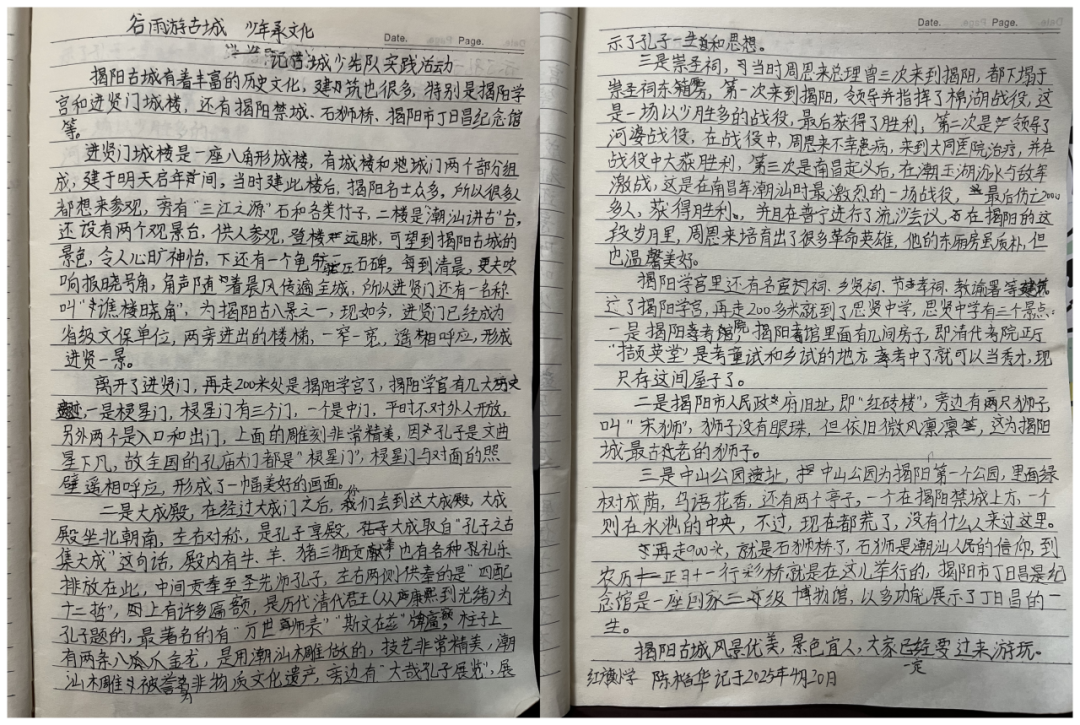 谷雨游古城 少年承文化
Date. Page.
记古城少先队实践活动
揭阳古城有着丰富的历史文化，建筑也很多，特别是揭阳学
宫和进贤门城楼，还有揭阳禁城、石狮桥、揭阳市丁日昌纪念馆
等。
进贤门城楼是一座八角形城楼，有城楼和地城门两个部分组
成，建于明天启年间。当时建此楼后，揭阳名士众多，所以很多人
都想来参观，旁有“三江之源”石和各类竹子，二楼是“潮汕讲古”台，
还设有两个观景台，供人参观，登楼远眺，可望到揭阳古城的
景色，令人心旷神怡，下还有一个龟石碑，每到清晨，更夫吹
响报晓号角，角声随着晨风传遍全城，所以进贤门还有一名称
叫“谯楼晓角”，为揭阳古八景之一，现如今，进贤门已经成为
省级文保单位，两旁进出的楼梯，一窄一宽，遥相呼应，形成
进贤一景。
离开了进贤门，再走200米处是揭阳学宫了，揭阳学宫有几大
，一是棂星门，棂星门有三个门，一个是中门，平时不对外人开放，
另外两个是入口和出门，上面的雕刻非常精美，因孔子是文曲
星下凡，故全国的孔庙大门都是“棂星门”，棂星门与对面的照
壁遥相呼应，形成了一幅美好的画面。
二是大成殿，在经过大成门之后，我们会到达大成殿，大成
殿坐北朝南，左右对称，是孔子享殿，大成取自“孔子之古
集大成”这句话，殿内有牛、羊、猪三牺贡献，也有各种礼乐
排放在此，中间贡奉至圣先师孔子，左右两侧供奉的是“四配
十二哲”，上有许多匾额，是历代清代君王（从康熙到光绪）为
孔子题的，最著名的有“万世师表”“斯文在兹”牌匾，柱子上
有两条八爪金龙，是用潮汕木雕做的，技艺非常精美，潮
汕木雕被誉为非物质文化遗产，旁边有“大哉孔子展览”，展
Date. Page.
示了孔子一生和思想。
三是崇圣祠，当时周恩来总理曾三次来到揭阳，都下榻于
崇圣祠东，第一次来到揭阳，领导并指挥了棉湖战役，这
是一场以少胜多的战役，最后获得了胜利，第二次是领导了
河婆战役，在战役中，周恩来不幸患病，来到大同医院治疗，并在
战役中大获胜利，第三次是南昌起义后，在潮王湖汾水与敌军
激战，这是在南昌军潮汕时最激烈的一场战役，最后伤亡200
多人，获得胜利，并且在普宁进行了流沙会议，在揭阳的这
段岁月里，周恩来培育出了很多革命英雄，他的东厢房虽质朴，但
也温馨美好。
揭阳学宫里还有名宦祠、乡贤祠、节孝祠、教谕署等建筑
过了揭阳学宫，再走200多米就到了思贤中学，思贤中学有三个景点：
一是揭阳考院，揭阳考馆里面有几间房子，即清代考院正厅
“撷英堂”是考童试和乡试的地方，考中了就可以当秀才，现
只存这间屋子了。
二是揭阳市人民政府旧址，即“红砖楼”，旁边有两只狮子，
叫“宋狮”，狮子没有眼珠，但依旧微风凛凛，这为揭阳
城最古老的狮子。
三是中山公园遗址，中山公园为揭阳第一个公园，里面绿
树成荫，鸟语花香，还有两个亭子，一个在揭阳禁城上方，一个
则在水池的中央，不过，现在都荒了，没有什么人来过这里。
再走900米，就是石狮桥了，石狮是潮汕人民的信仰，到
农历正月十一行彩桥就是在这儿举行的，揭阳市丁日昌纪
念馆是一座国家三等级博物馆，以多功能展示了丁日昌的一
生。
揭阳古城风景优美，景色宜人，大家一定要过来游玩。
红旗小学 陈裕华记于2025年4月20日